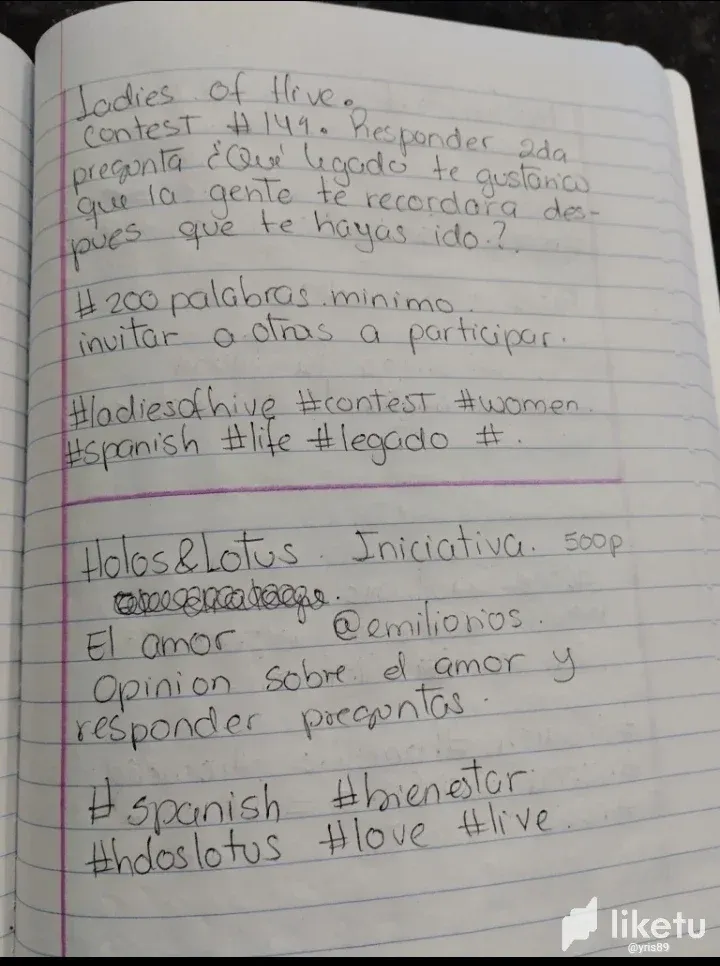 Ladies of Hive.
Contest #149. Responder 2da
pregunta ¿Qué legado te gustaría
que la gente te recordara des-
pues que te hayas ido?
# 200 palabras minimo.
invitar a otras a participar.
#ladiesofhive #contest #women.
#spanish #life #legado #.
Holos&Lotus. Iniciativa. 500p
El amor @emiliorios.
Opinion sobre el amor y
responder preguntas.
#spanish #bienestar
#holoslotus #love #live.
liketu
@yris89